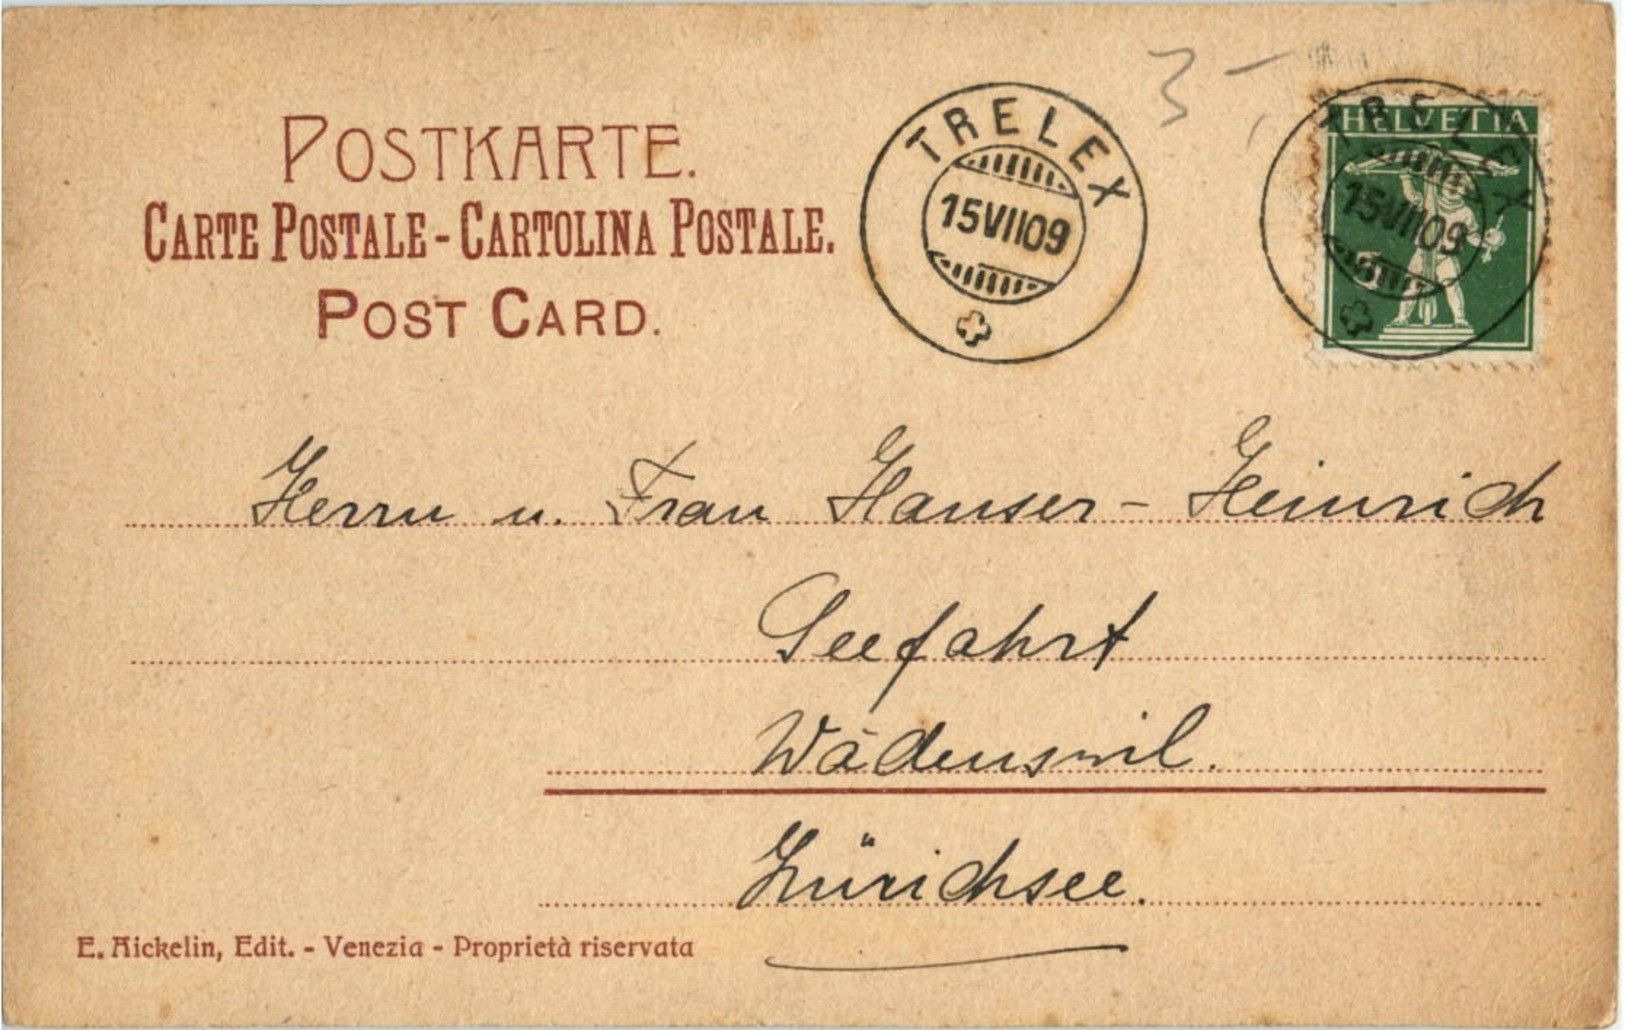 POSTKARTE.
CARTE POSTALE - CARTOLINA POSTALE.
POST CARD.
TRELEX
15 VII 09
3 -,
HELVETIA
TRELEX
15 VII 09
Herrn u. Frau Hauser - Heinrich
Seefahrt
Wädenswil.
Zürichsee.
E. Aickelin, Edit. - Venezia - Proprietà riservata